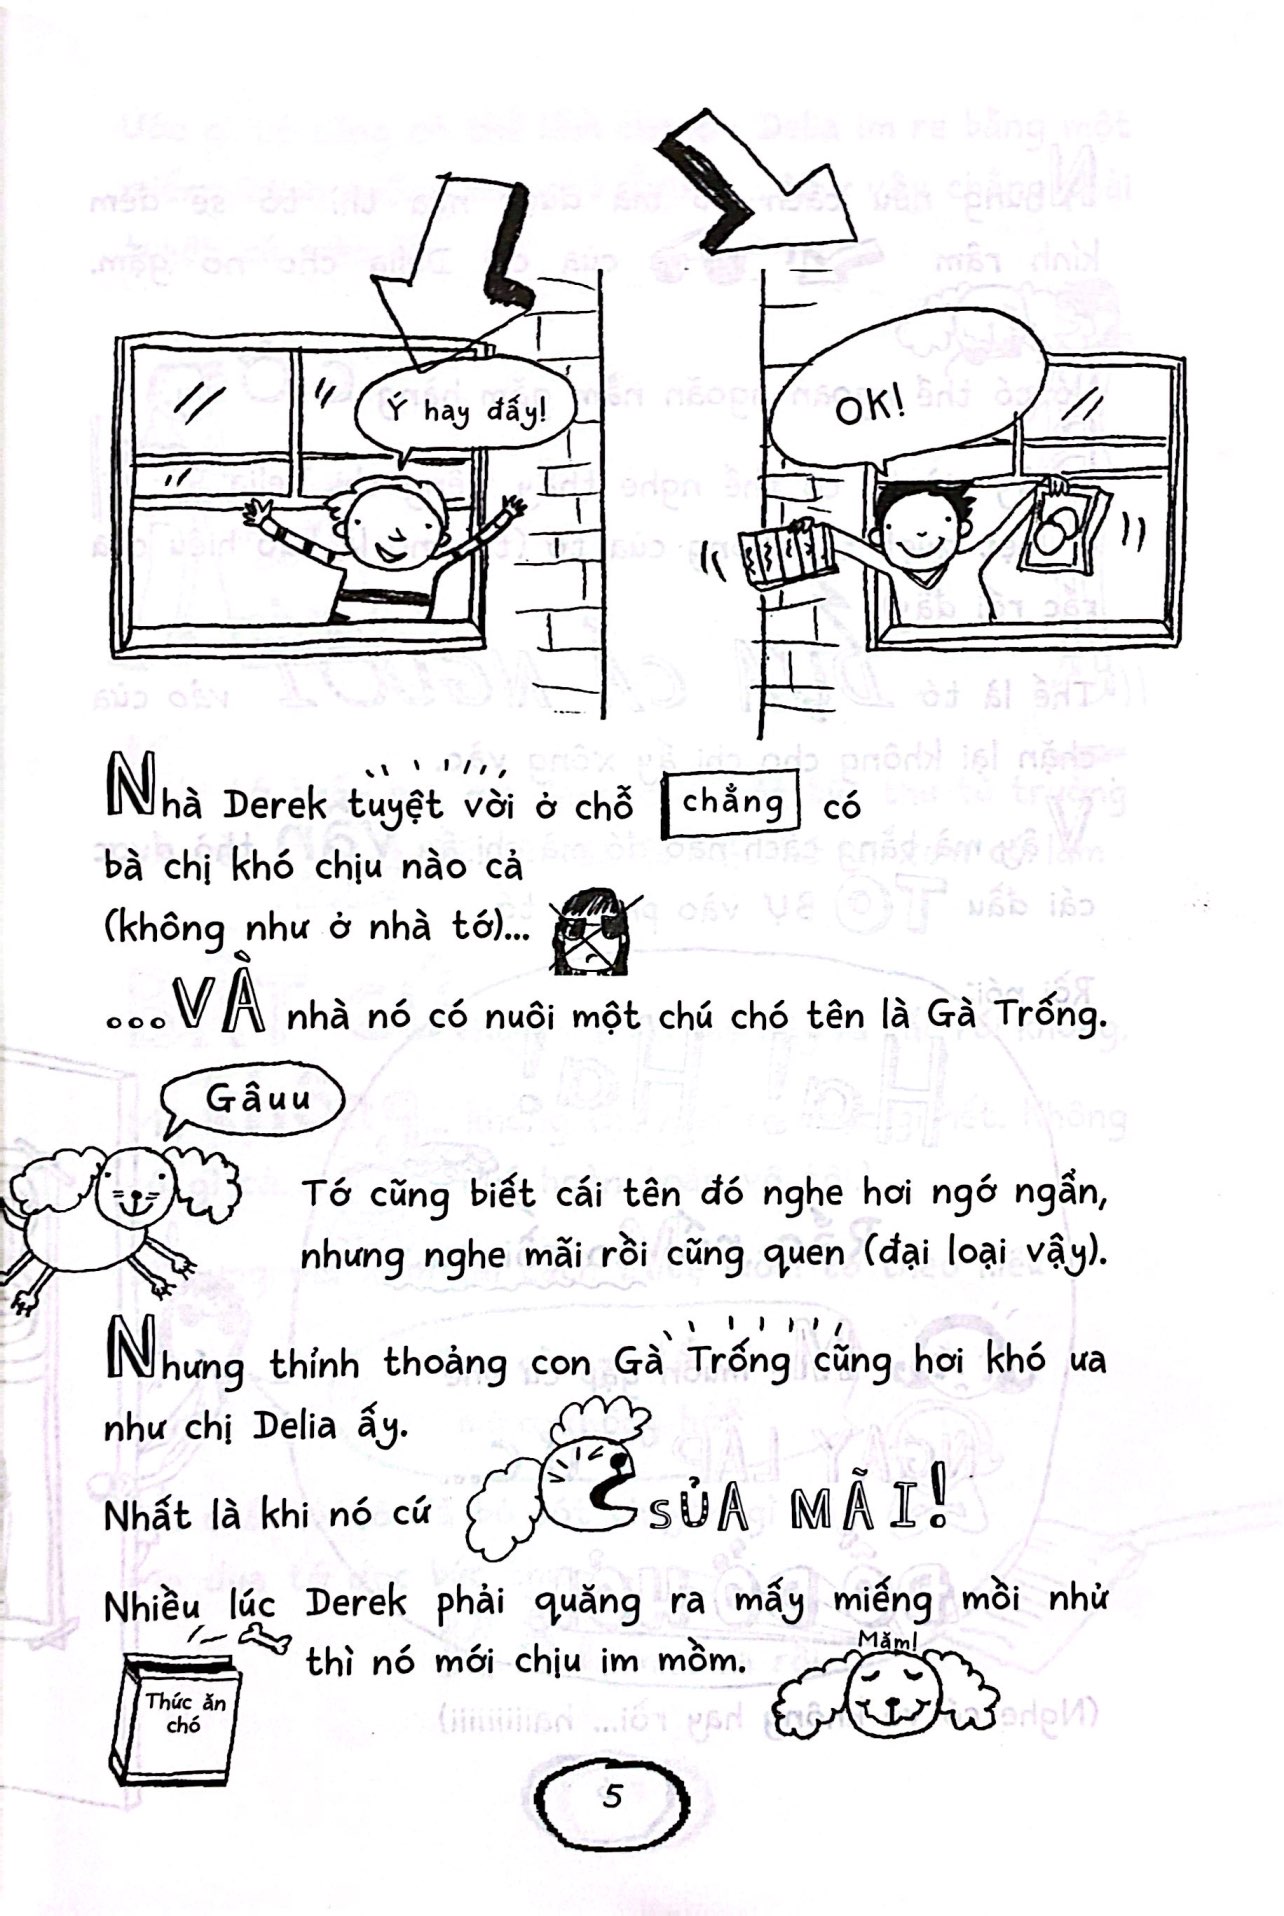 Ý hay đấy!
OK!
Nhà Derek tuyệt vời ở chỗ chẳng có
bà chị khó chịu nào cả
(không như ở nhà tớ)...
...VÀ nhà nó có nuôi một chú chó tên là Gà Trống.
Gâuu
Tớ cũng biết cái tên đó nghe hơi ngớ ngẩn,
nhưng nghe mãi rồi cũng quen (đại loại vậy).
Nhưng thỉnh thoảng con Gà Trống cũng hơi khó ưa
như chị Delia ấy.
Nhất là khi nó cứ SỦA MÃI!
Nhiều lúc Derek phải quăng ra mấy miếng mồi nhử
thì nó mới chịu im mồm.
Măm!
Thức ăn
chó
5